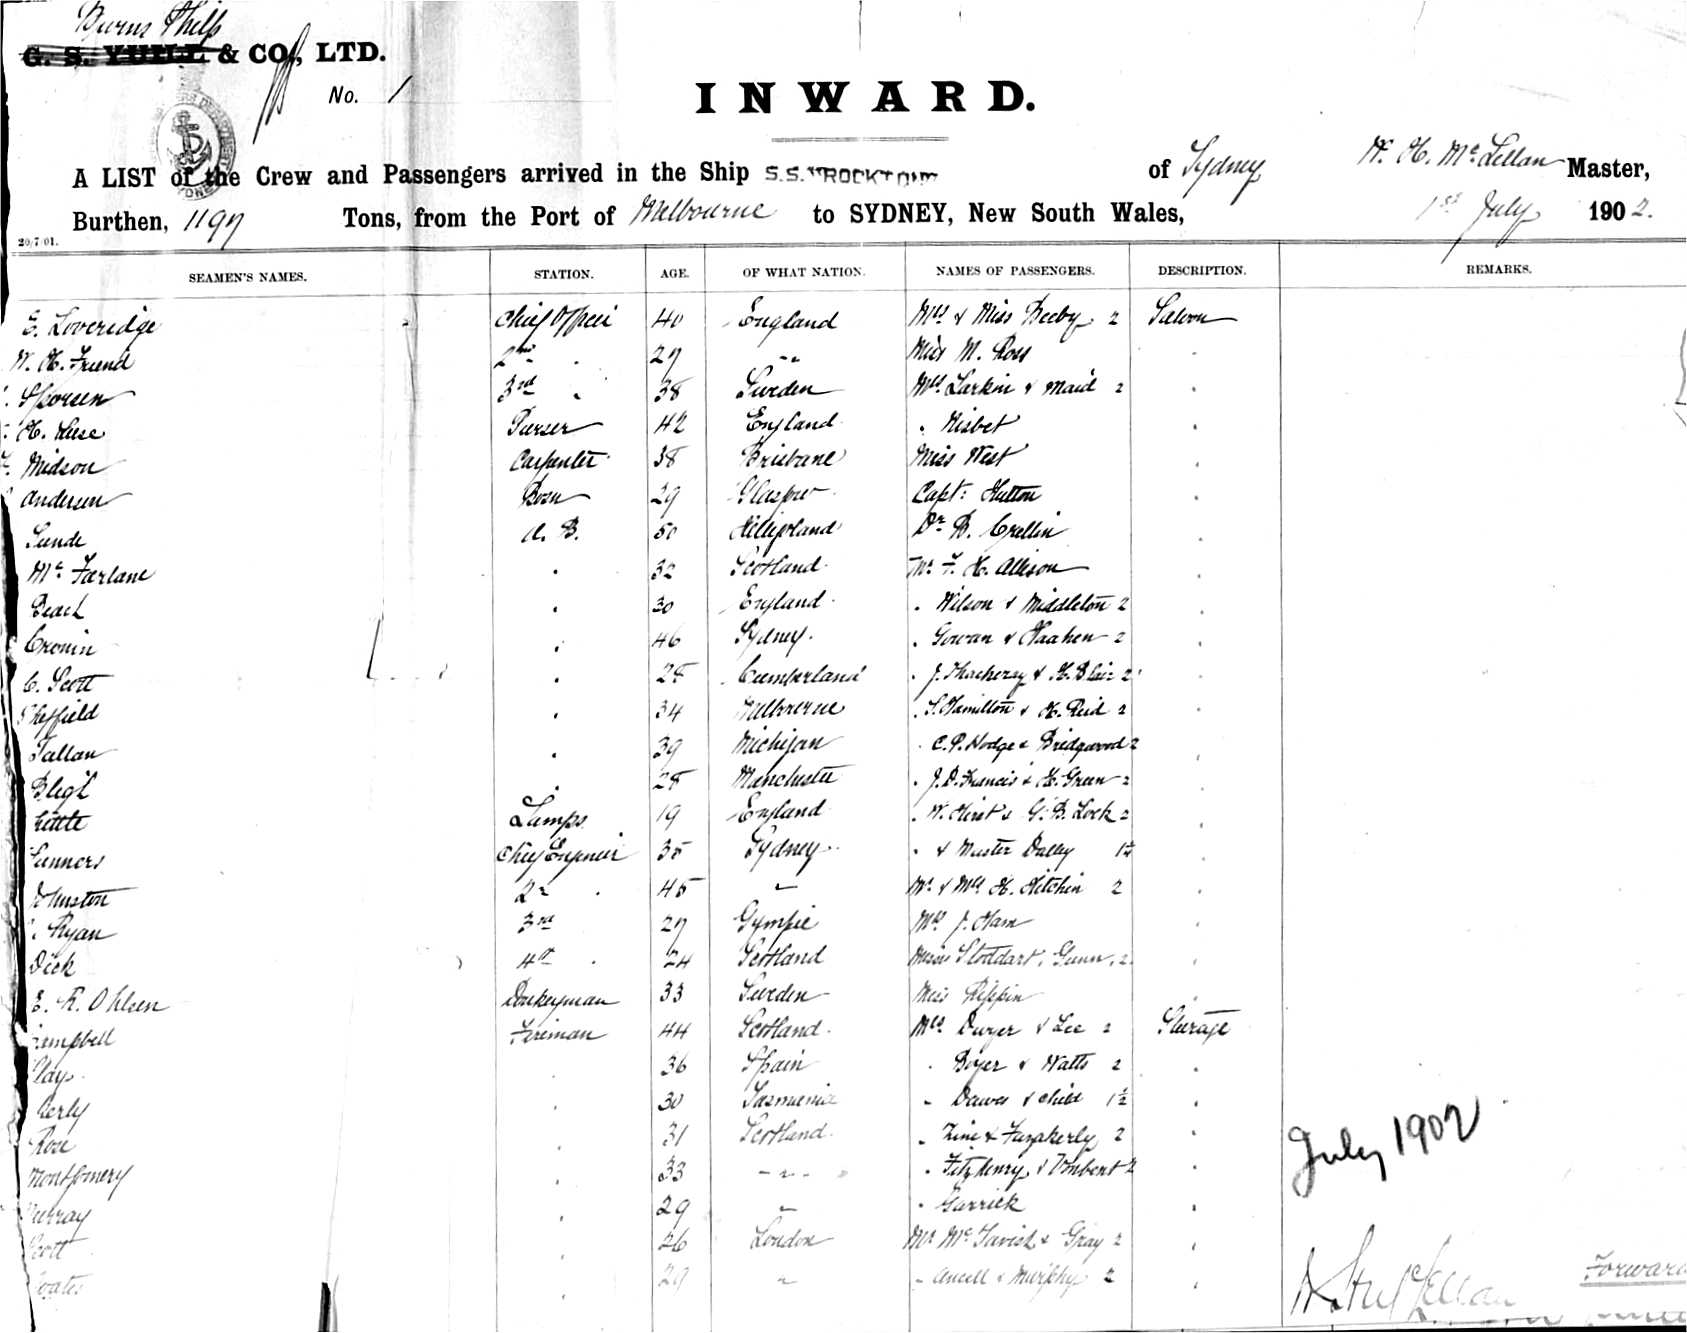 Burns Philp
G. S. YUILL & CO., LTD.
No. 1
INWARD.
A LIST of the Crew and Passengers arrived in the Ship S.S. "ROCKTON" of Sydney W. H. McLellan Master,
Burthen, 1197 Tons, from the Port of Melbourne to SYDNEY, New South Wales, 1st July 1902.
20/7/01.
SEAMEN'S NAMES. STATION. AGE. OF WHAT NATION. NAMES OF PASSENGERS. DESCRIPTION. REMARKS.
E. Loveridge Chief Officer 40 England Mrs & Miss Beeby 2 Saloon
W. H. Friend 2nd " 27 " " Miss M. Ross "
3rd " 38 Sweden Mrs Larkin & Maid 2 "
Purser 42 England " Nisbet "
Midson Carpenter 38 Brisbane Miss West "
Andersen Bosn 29 Glasgow Capt: Hutton "
Sunde A. B. 50 Heligoland Dr B. Crellin "
McFarlane " 32 Scotland Mr F. H. Allison "
Beach " 30 England " Wilson & Middleton 2 "
Cronin " 46 Sydney " Gowan & 2 "
C. Scott " 28 Cumberland " J. Thackeray & H. Blair 2 "
Sheffield " 34 Melbourne " S. Hamilton & H. Reid 2 "
Tallan " 39 Michigan " C. P. Hodge & Bridgwood 2 "
Bligh " 28 Manchester " J. D. Francis & H. Green 2 "
Little Lamps 19 England " W. Hirst & G. B. Lock 2 "
Chief Engineer 35 Sydney " & Master Dalley "
Johnston 2nd " 45 " Mr & Mrs H. Kitchin 2 "
Ryan 3rd 27 Gympie Mrs J. Ham "
Dick 4th " 24 Scotland Misses Stoddart, Gunn, 2 "
E. R. Ohlsen Donkeyman 33 Sweden Miss Rippin "
Campbell Fireman 44 Scotland Mrs Dwyer & Lee 2 Steerage
" 36 Spain " Boyer & Watts 2 "
" 30 Tasmania " Dawes & child 1½ "
Rose " 31 Scotland " & Fazakerly 2 "
Montgomery " 33 " " " Fitzhenry & 2 "
Murray " 29 " " Garrick "
Scott " 26 London Mr McTavish & Gray 2 "
Coates " 29 " " Ancell & Murphy 2
July 1902
W. H. McLellan
Forward